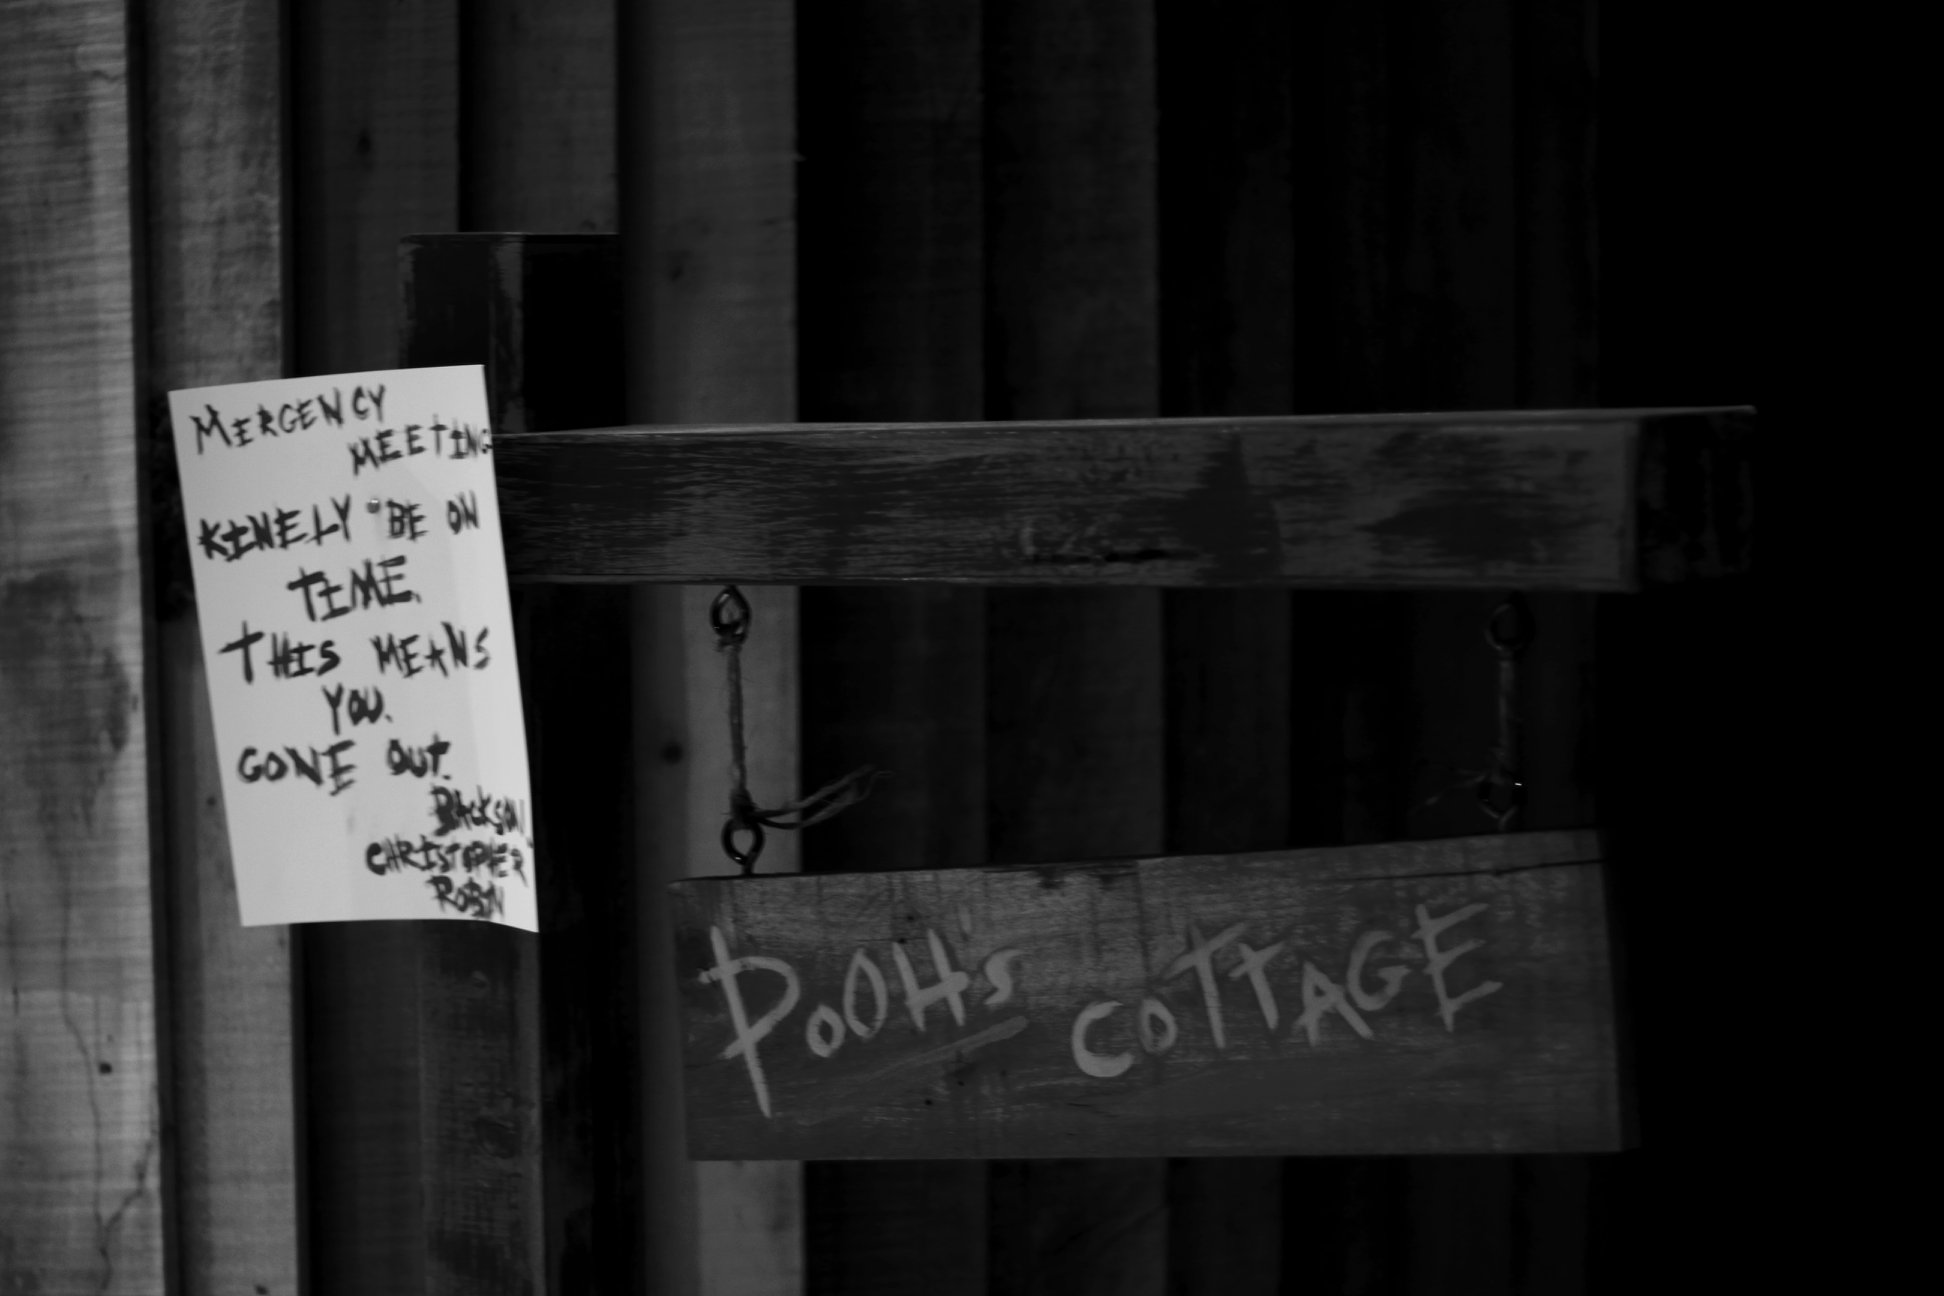 MERGENCY
MEETING
KINELY BE ON
TIME.
THIS MEANS
YOU.
GONE OUT.
BACKSON
CHRISTOPHER
ROBIN
POOH'S COTTAGE